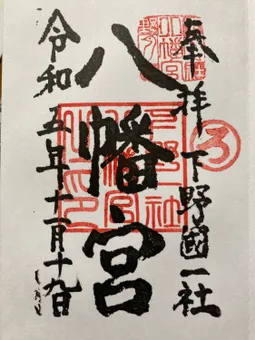 奉拝 下野國一社
八幡宮
令和五年十一月十九日
ろ